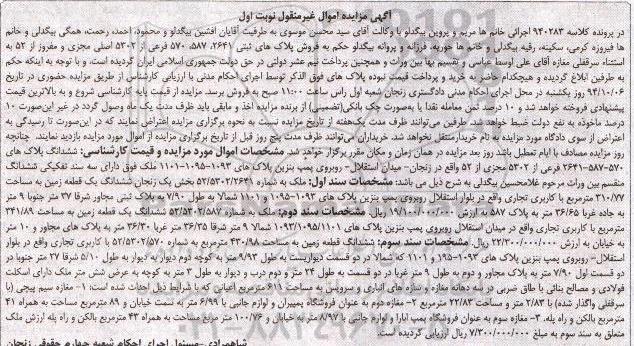 آگهی مزایده اموال غیرمنقول نوبت اول
در پرونده کلاسه ۹۴۰۲۸۳ اجرائی خانم ها مریم و پروین بیگدلو با وکالت آقای سید محسن موسوی به طرفیت آقایان افشین بیگدلو و محمود، احمد، رحمت، همگی بیگدلی و خانم
ها فیروزه کرمی، سکینه، رقیه بیگدلی و خانم ها حوریه، فرزانه و پروانه بیگدلو حکم به فروش پلاک های ثبتی ۲۶۴۱، ۵۸۷، ۵۷۰ فرعی از ۵۳۰۲ اصلی مجزی و مفروز از ۵۲ به
استثناء سرقفلی مغازه آقای علی اوسط عباسی و تقسیم بها بین وراث و همچنین پرداخت نیم عشر دولتی در حق دولت جمهوری اسلامی ایران گردیده است، و با توجه به اینکه حکم
به طرفین ابلاغ گردیده و هیچکدام حاضر به خرید و پرداخت قیمت نبوده پلاک های فوق الذکر توسط اجرای احکام مدنی با ارزیابی کارشناس از طریق مزایده حضوری در تاریخ
۹۴/۱۰/۰۶ روز یکشنبه در محل اجرای احکام مدنی دادگستری زنجان شعبه اول راس ساعت ۱۱:۰۰ صبح به فروش برسد. مزایده از قیمت پایه کارشناسی شروع و به بالاترین قیمت
پیشنهادی فروخته خواهد شد و ۱۰ درصد ثمن معامله نقدا یا به‌صورت چک بانکی(تضمینی) از برنده مزایده اخذ و مابقی باید ظرف مدت یک ماه وصول گردد در غیر این‌صورت ۱۰
درصد ماخوذه به نفع دولت ضبط خواهد شد. طرفین می‌توانند ظرف مدت یک‌هفته از تاریخ مزایده نسبت به نحوه برگزاری مزایده اعتراض نمایند که در این‌صورت تا رسیدگی به
اعتراض از سوی دادگاه مورد مزایده به نام خریدار منتقل نخواهد شد. خریداران می‌توانند ظرف مدت پنج روز قبل از تاریخ برگزاری مزایده از اموال مورد مزایده بازدید نمایند. چنانچه
روز مزایده مصادف با ایام تعطیل باشد روز بعد مزایده در همان زمان و مکان مقرر برگزار خواهد شد. مشخصات اموال مورد مزایده و قیمت کارشناسی: ششدانگ پلاک های
۵۷۰-۵۸۷-۲۶۴۱ فرعی از ۵۳۰۲ مجزی از ۵۲ واقع در زنجان- میدان استقلال- روبروی پمپ بنزین پلاک های ۱۰۹۳-۱۰۹۵-۱۱۰۱ ملک فوق دارای سه سند تفکیکی ششدانگ
منقسم بین وراث مرحوم غلامحسین بیگدلی به شرح ذیل می باشد: مشخصات سند اول: ملک به شماره ۵۲/۵۳۰۲/۲۶۴۱ بخش یک زنجان ششدانگ یک قطعه زمین به مساحت
۳۱۰/۷۷ مترمربع با کاربری تجاری واقع در بلوار استقلال روبروی پمپ بنزین پلاک های ۱۰۹۳-۱۰۹۵ و ۱۱۰۱ شمالا به طول ۷/۹۰ و پلاک ثبتی مجاور شرقا ۳۷ متر جنوبا ۹ متر
به جاده غربا ۳۶/۶۵ متر به پلاک ۵۸۷ به ارزش ۱۹/۱۰۰/۰۰۰/۰۰۰ ریال. مشخصات سند دوم: ملک به شماره ۵۳/۵۳۰۲/۵۸۷ ششدانگ یک قطعه زمین به مساحت ۳۴۱/۸۹
مترمربع با کاربری تجاری واقع در میدان استقلال روبروی پمپ بنزین پلاک های ۱۰۹۳/۱۰۹۵/۱۱۰۱ شمالا ۹ متر شرقا ۳۶/۳۵ متر غربا ۳۶/۳۰ متر به پلاک های مجاور و ۱۰ متر
به خیابان به ارزش ۲۲/۳۰۰/۰۰۰/۰۰۰ ریال. مشخصات سند سوم: ششدانگ قطعه زمین به مساحت ۴۳۰/۹۸ مترمربع به شماره ۵۲/۵۳۰۲/۵۷۰ با کاربری تجاری واقع در بلوار
استقلال- روبروی پمپ بنزین پلاک های ۱۰۹۳-۱۹۵ و ۱۱۰۱ که شمالا در دو قسمت دیواریست به طول ۹/۹۳ متر به کوچه دوم دیوار به دیوار به طول ۵/۱۰ شرقا ۳۷ متر جنوبا در
دو قسمت اول ۷/۹۰ متر به پلاک مجاور و دوم به طول ۹ متر غربا در دو قسمت به طول ۲۴ متر و دوم درب و دیوار به طول ۳ متر به کوچه به عرض شش متر ملک دارای اسکلت
فولادی و مصالح بنائی با طاق ضربی در سه دهانه مغازه و سازه های انباری و سرویس به مساحت ۶۱۱ مترمربع اعیانی که با شرایط ذیل احداث شده است: ۱- مغازه سیم پیچی (با
سرقفلی واگذار شده) با ۲/۸۳ متر و مساحت ۲۲/۸۳ مترمربع ۲- مغازه دوم به عنوان فروشگاه پمپیران و لوازم جانبی با ۶/۹۹ متر به سمت خیابان و ۸۹ مترمربع مساحت به همراه ۴۱
مترمربع بالکن و راه پله. ۳- مغازه سوم به عنوان فروشگاه پمپ ابارا و لوازم جانبی با ۸/۹۷ متر به خیابان و ۱۰۰/۷۶ متر مربع مساحت به همراه ۴۳ مترمربع بالکن و راه پله ارزش ملک
متعلق به سند سوم به مبلغ ۷/۳۰۰/۰۰۰/۰۰۰ ریال ارزیابی گردیده است.
شاهمرادی -مسئول اجرای احکام شعبه چهارم حقوقی زنجان